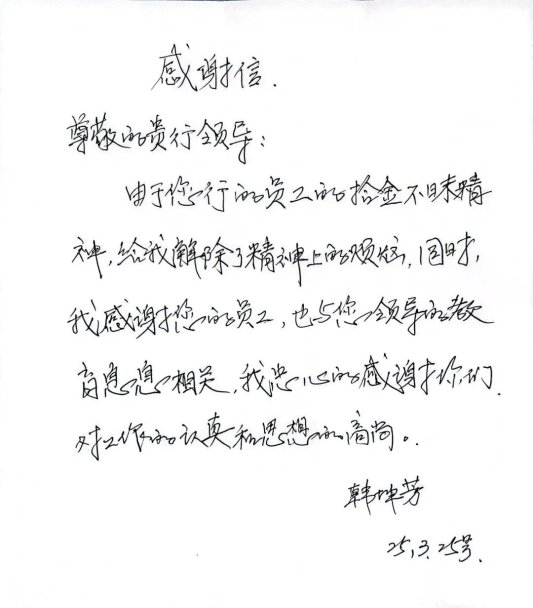 感谢信.
尊敬的贵行领导:
由于您行的员工的拾金不昧精
神,给我解除了精神上的烦恼,同时,
我感谢您的员工,也与您领导的教
育息息相关,我忠心的感谢你们
对工作的认真和思想的高尚。
韩坤芳
25,3.25号.